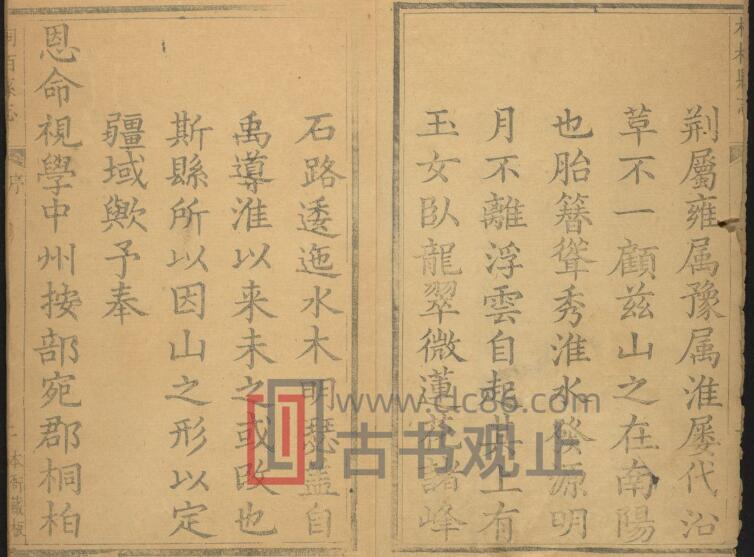 荆屬雍属豫属淮屡代沿
草不一顧兹山之在南陽
也胎簮聳秀淮水發源明
月不離浮雲自起其上有
玉女臥龍翠微蓮花諸峰
石路逶迤水木明瑟蓋自
禹導淮以来未之或改也
斯縣所以因山之形以定
疆域歟予奉
恩命視學中州按部宛郡桐柏
序
本衙藏板
www.clc86.com
古书观止